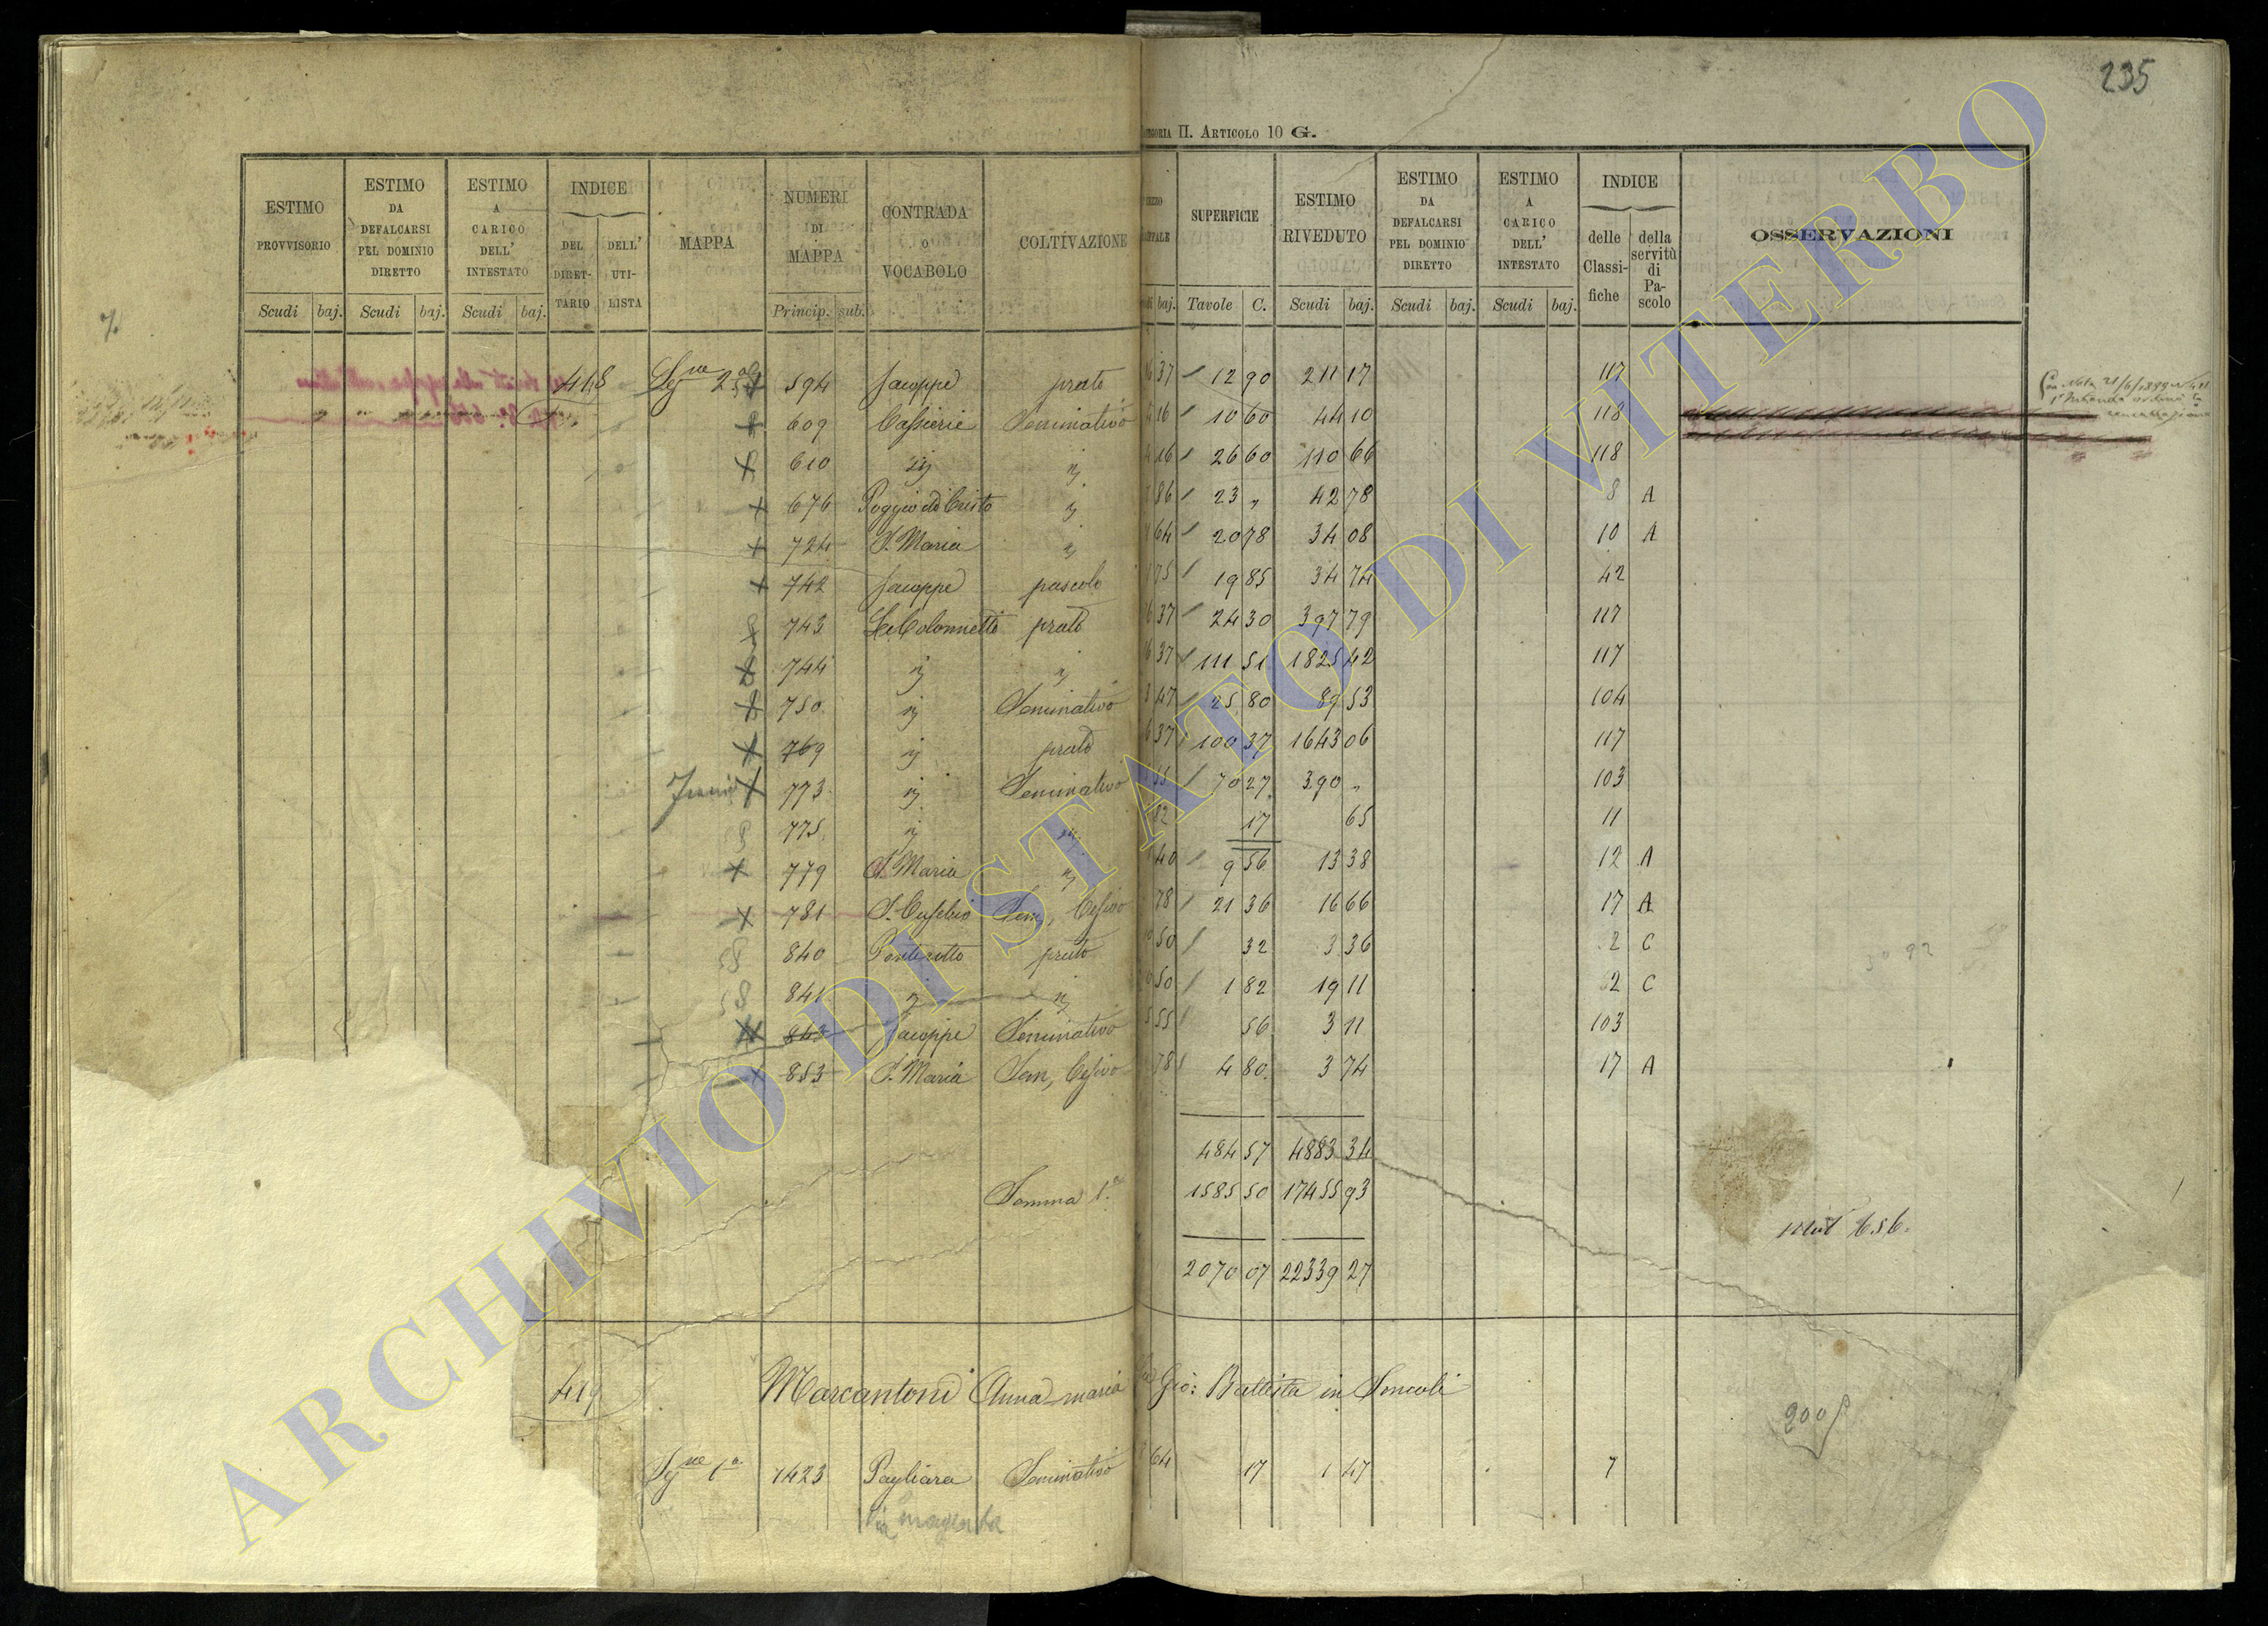 235
Categoria II. Articolo 10 G.
ESTIMO PROVVISORIO Scudi baj.
ESTIMO DA DEFALCARSI PEL DOMINIO DIRETTO Scudi baj.
ESTIMO A CARICO DELL' INTESTATO Scudi baj.
INDICE DEL DIRETTARIO DELL' UTILISTA
MAPPA
NUMERI DI MAPPA Princip. sub.
CONTRADA O VOCABOLO
COLTIVAZIONE
SUPERFICIE Tavole C.
ESTIMO RIVEDUTO Scudi baj.
ESTIMO DA DEFALCARSI PEL DOMINIO DIRETTO Scudi baj.
ESTIMO A CARICO DELL' INTESTATO Scudi baj.
INDICE delle Classifiche della servitù di Pascolo
OSSERVAZIONI
418 2a 594 Jacoppe prato 37 12 90 211 17 117
609 Cassierie Seminativo 16 10 60 44 10 118
610 16 26 60 110 66 118
676 Poggio del Cristo 86 23 " 42 78 8 A
724 S. Maria 64 20 78 34 08 10 A
742 Jacoppe pascolo 75 19 85 34 74 42
743 Le Colonnette prato 37 24 30 397 79 117
744 37 111 51 1825 42 117
750 Seminativo 47 25 80 89 53 104
769 prato 37 100 37 1643 06 117
773 Seminativo 55 70 27 390 " 103
775 82 17 65 11
779 S. Maria 40 9 56 13 38 12 A
781 S. Eusebio Sem, Cesivo 78 21 36 16 66 17 A
840 Ponterotto prato 50 32 3 36 2 C
841 50 1 82 19 11 2 C
843 Jacoppe Seminativo 55 56 3 11 103
853 S. Maria Sem, Cesivo 78 4 80 3 74 17 A
484 57 4883 34
Somma 1.a 1585 50 17455 93
2070 07 22339 27
419 Marcantoni Anna Maria Gio: Battista in Soncoli
1a 1423 Pagliara Seminativo 64 17 1 47 7
Via magenta
200
ARCHIVIO DI STATO DI VITERBO